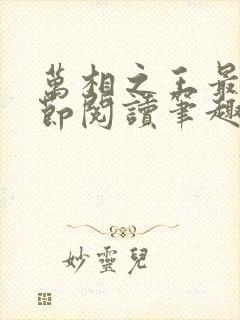 萬相之王最
節閱讀筆趣
妙靈兒